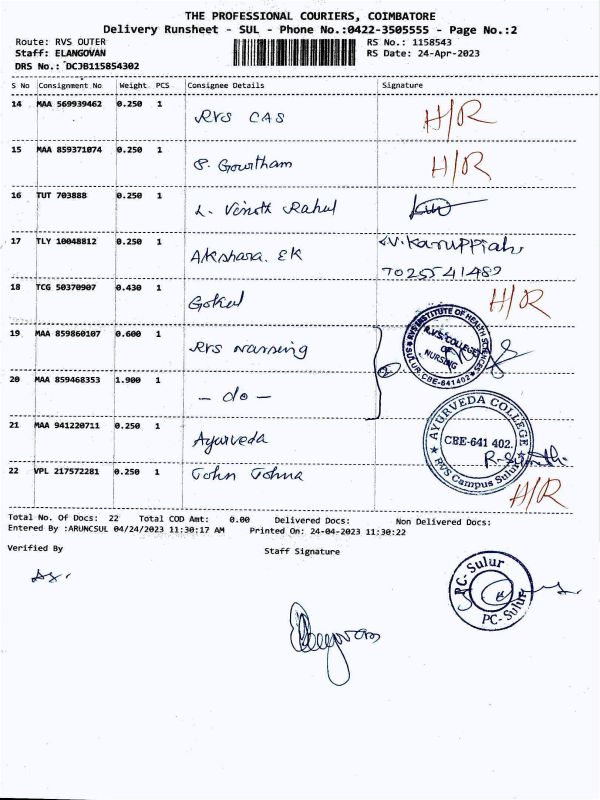 THE PROFESSIONAL COURIERS, COIMBATORE
Delivery Runsheet - SUL - Phone No.:0422-3505555 - Page No.:2
Route: RVS OUTER RS No.: 1158543
Staff: ELANGOVAN RS Date: 24-Apr-2023
DRS No.: DCJB115854302
S No Consignment No Weight PCS Consignee Details Signature
14 MAA 569939462 0.250 1 RVS CAS H/R
15 MAA 859371074 0.250 1 P. Gowtham H/R
16 TUT 703888 0.250 1 L. Vinoth Rahul
17 TLY 10048812 0.250 1 Akshara. EK V. Karuppiah
7025541482
18 TCG 50370907 0.430 1 Gokul H/R
19 MAA 859860107 0.600 1 RVS Nursing
RVS INSTITUTE OF HEALTH SCIENCES
R.V.S. COLLEGE
OF
NURSING
SULUR, CBE-641402
20 MAA 859468353 1.900 1 - do - 2
21 MAA 941220711 0.250 1 Ayurveda
AYURVEDA COLLEGE
CBE-641 402.
RVS Campus Sulur
22 VPL 217572281 0.250 1 John Johna H/R
Total No. Of Docs: 22 Total COD Amt: 0.00 Delivered Docs: Non Delivered Docs:
Entered By :ARUNCSUL 04/24/2023 11:30:17 AM Printed On: 24-04-2023 11:30:22
Verified By Staff Signature
PC-Sulur
PC-Sulur
Elangovan